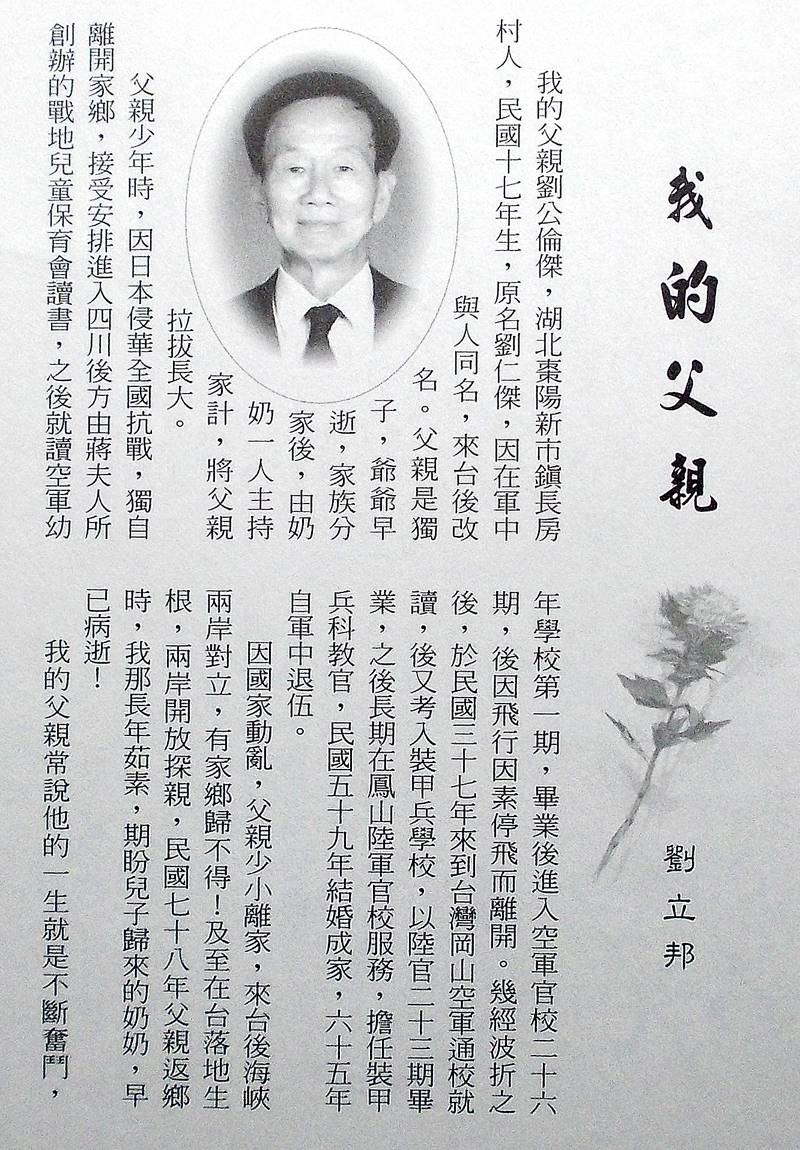 我的父親
劉立邦
我的父親劉公倫傑，湖北棗陽新市鎮長房
村人，民國十七年生，原名劉仁傑，因在軍中
與人同名，來台後改
名。父親是獨
子，爺爺早
逝，家族分
家後，由奶
奶一人主持
家計，將父親
拉拔長大。
父親少年時，因日本侵華全國抗戰，獨自
離開家鄉，接受安排進入四川後方由蔣夫人所
創辦的戰地兒童保育會讀書，之後就讀空軍幼
年學校第一期，畢業後進入空軍官校二十六
期，後因飛行因素停飛而離開。幾經波折之
後，於民國三十七年來到台灣岡山空軍通校就
讀，後又考入裝甲兵學校，以陸官二十三期畢
業，之後長期在鳳山陸軍官校服務，擔任裝甲
兵科教官，民國五十九年結婚成家，六十五年
自軍中退伍。
因國家動亂，父親少小離家，來台後海峽
兩岸對立，有家鄉歸不得！及至在台落地生
根，兩岸開放探親，民國七十八年父親返鄉
時，我那長年茹素，期盼兒子歸來的奶奶，早
已病逝！
我的父親常說他的一生就是不斷奮鬥，